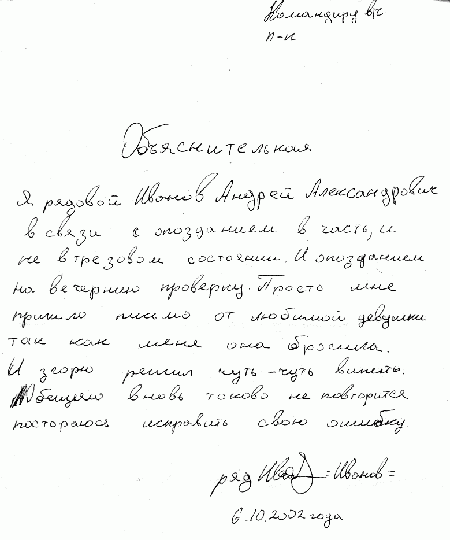 Командиру в/ч
п-к
Объяснительная
Я рядовой Иванов Андрей Александрович
в связи с опозданием в часть, и
не в трезвом состоянии. И опозданием
на вечернию проверку. Просто мне
пришло письмо от любимой девушки
так как меня она бросила.
И згорю решил чуть-чуть выпить.
Обещяю вновь такого не повторится
постораюсь исправить свою ошибку.
ряд Иванов =Иванов=
6.10.2002 года